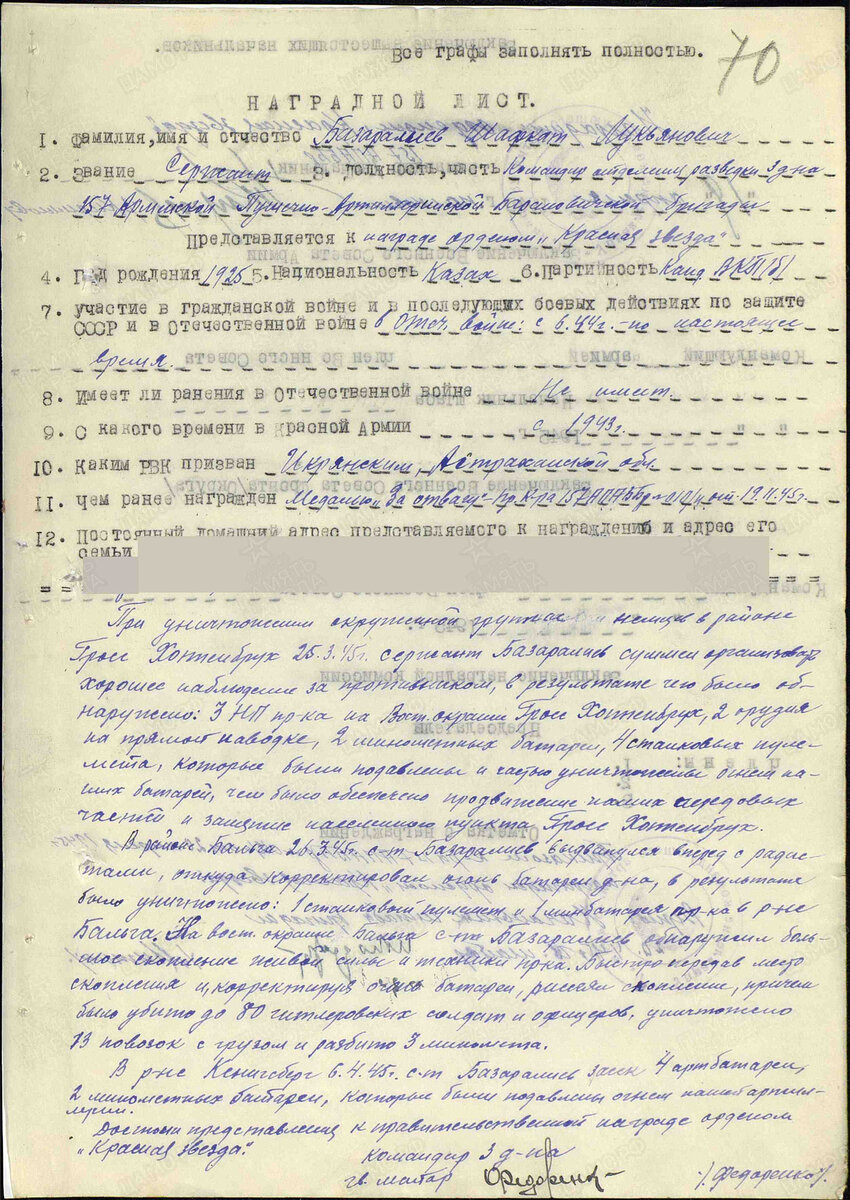 Все графы заполнять полностью.
70
НАГРАДНОЙ ЛИСТ.
1. Фамилия, имя и отчество Базаралиев Шафкат Лукьянович
2. Звание Сержант 3. Должность, часть Командир отделения разведки 3 д-на
157 Армейской Пушечно-Артиллерийской Барановичской бригады
Представляется к награде орденом „Красная звезда"
4. Год рождения 1925 5. Национальность Казах 6. Партийность Канд ВКП/б/
7. участие в гражданской войне и в последующих боевых действиях по защите
СССР и в Отечественной войне в отеч. войне: с 6.44г. по настоящее
время.
8. Имеет ли ранения в Отечественной войне Не имеет.
9. С какого времени в Красной Армии с 1943г.
10. Каким РВК призван Икрянским, Астраханской обл.
11. Чем ранее награжден Медалью „За отвагу" 19.11.45г.
12. Постоянный домашний адрес представляемого к награждению и адрес его
семьи
При уничтожении окруженной группы немцев в районе
Гросс Хоппенбрух 25.3.45г. сержант Базаралиев сумел организовать
хорошее наблюдение за противником, в результате чего было об-
наружено: 3 НП пр-ка на Вост. окраине Гросс Хоппенбрух, 2 орудия
на прямой наводке, 2 минометных батареи, 4 станковых пуле-
мета, которые были подавлены и частью уничтожены огнем на-
ших батарей, чем было обеспечено продвижение наших передовых
частей и занятие населенного пункта Гросс Хоппенбрух.
В районе Бальга 25.3.45г. с-т Базаралиев выдвинулся вперед с радис-
тами, откуда корректировал огонь батарей д-на, в результате
было уничтожено: 1 станковый пулемет и 1 минбатарея пр-ка в р-не
Бальга. На вост. окраине Бальга с-т Базаралиев обнаружил боль-
шое скопление живой силы и техники пр-ка. Быстро передав место
скопления и, корректируя огонь батареи, рассеял скопление, причем
было убито до 80 гитлеровских солдат и офицеров, уничтожено
13 повозок с грузом и разбито 3 миномета.
В р-не Кенигсберг 6.4.45г. с-т Базаралиев засек 4 артбатареи,
2 минометных батареи, которые были подавлены огнем нашей артил-
лерии.
Достоин представления к правительственной награде орденом
„Красная звезда".
Командир 3 д-на
гв. майор Федоренко /Федоренко/.